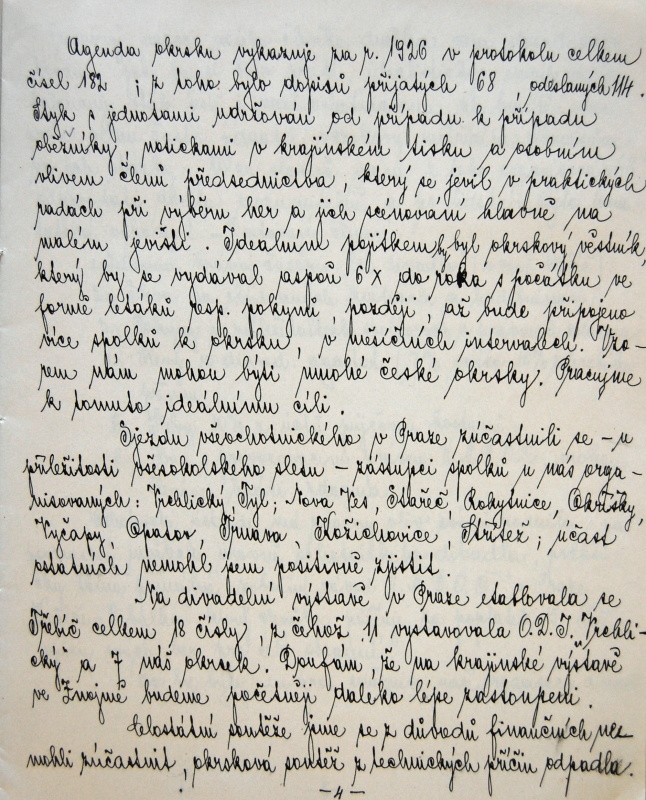 Agenda okrsku vykazuje za r. 1926 v protokolu celkem
čísel 182 ; z toho bylo dopisů přijatých 68 odeslaných 114.
Styk s jednotami udržován od případu k případu
oběžníky, notickami v krajinském tisku a osobním
vlivem členů předsednictva, který se jevil v praktických
radách při výběru her a jich scénování hlavně na
malém jevišti. Ideálním pojítkem by byl okrskový věstník,
který by se vydával aspoň 6 x do roka s počátku ve
formě letáků resp. pokynů, později, až bude připojeno
více spolků k okrsku, v měsíčních intervalech. Vzo-
rem nám mohou býti mnohé české okrsky. Pracujme
k tomuto ideálnímu cíli.
Sjezdu všeochotnického v Praze zúčastnili se – u
příležitosti všesokolského sletu – zástupci spolků u nás orga-
nisovaných: Vrchlický, Tyl; Nová Ves, Stařeč, Rokytnice, Okříšky,
Výčapy, Opatov, Trnava, Kožichovice, Střítež; účast
ostatních nemohl jsem positivně zjistit.
Na divadelní výstavě v Praze etablovala se
Třebíč celkem 18 čísly, z čehož 11 vystavovala O.D.J. "Vrchli-
cký" a 7 náš okrsek. Doufám, že na krajinské výstavě
ve Znojmě budeme početněji daleko lépe zastoupeni.
Celostátní soutěže jsme se z důvodů finančních nes-
mohli zúčastnit, okrsková soutěž z technických příčin odpadla.
–4–